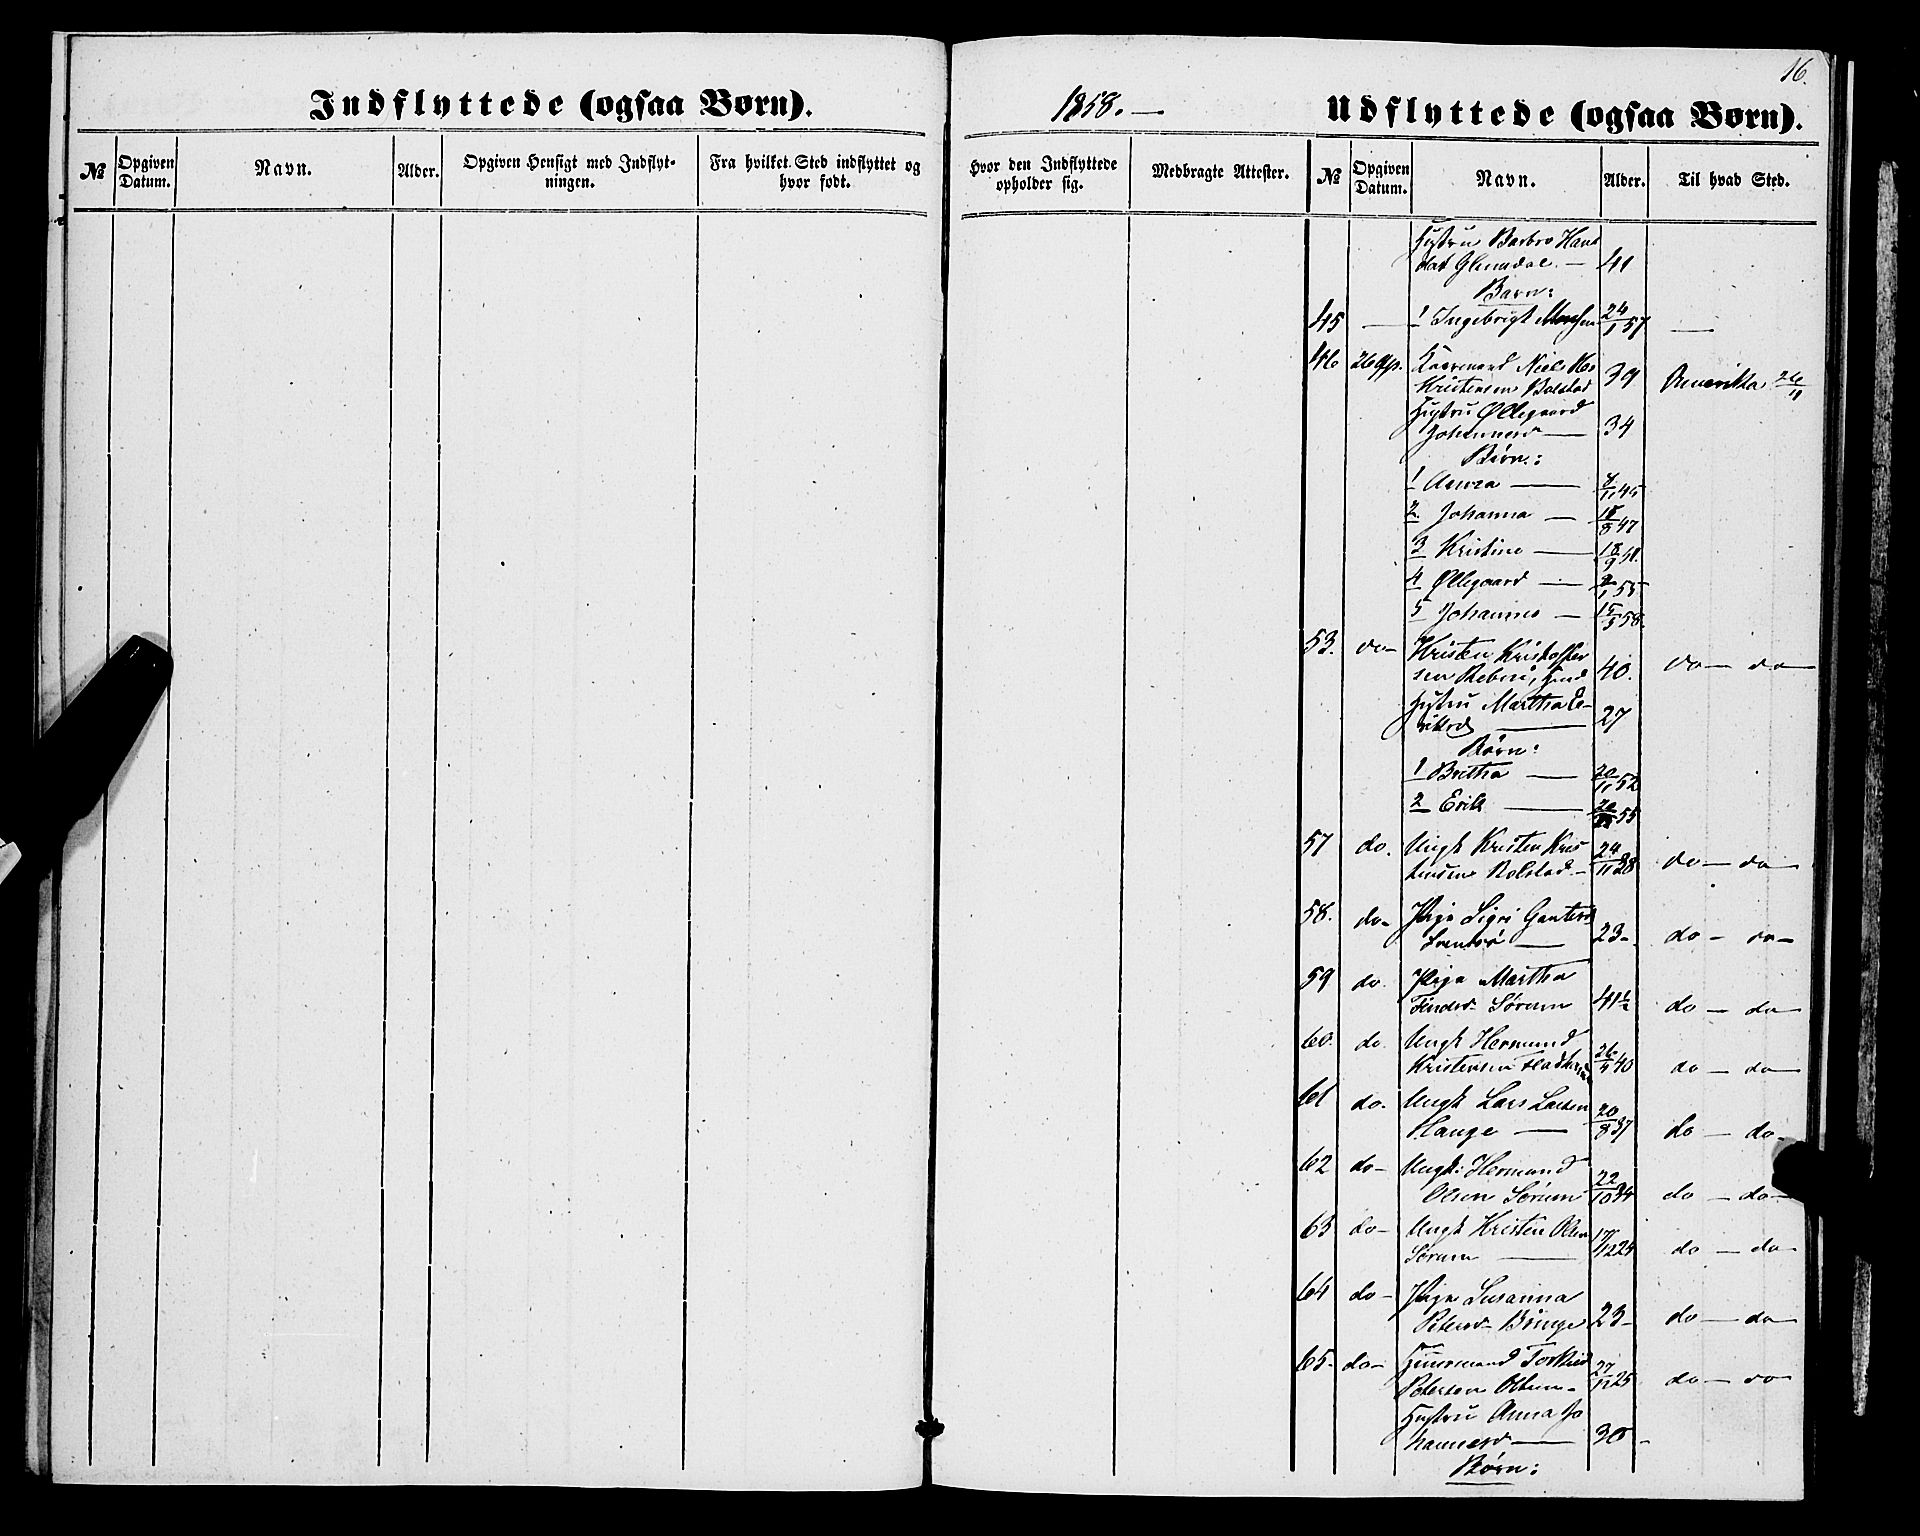 16.
Indflyttede (ogsaa Børn).
1858. —
Udflyttede (ogsaa Børn).
№
Opgiven Datum.
Navn.
Alder.
Opgiven Hensigt med Indflyt-
ningen.
Fra hvilket Sted indflyttet og
hvor født.
Hvor den Indflyttede
opholder sig.
Medbragte Attester.
№
Opgiven Datum.
Navn.
Alder.
Til hvad Sted.
Hustru Barbro Hans
dat — 41
Barn:
45 — 1 Ingebrigt 24/1 57 —
46 26 Apr. Niels
Kristensen Bolstad 39 Amerika 26/11
Hustru Øllegaard
Johannesd — 34
Børn:
1 Anna — 8/11 45
2. Johanna — 18/8 47
3 Kristine — 18/9 51.
4 Øllegaard — 2/1 55
5 Johannes — 15/5 58.
53. do — Kristen Kristoffer
sen 40. do — do —
Hustru Martha E-
riksd — 27
Børn:
1 Brittha — 20/11 52
2 Erik — 55
57 do. Ungk Kristen Kris
tensen Bolstad — 24/11 38 do — do —
58. do — Pige Sigri
23 — do — do —
59 do. Pige Martha
Sørum 41½ do — do —
60. do. Ungk Hermund
Kristensen 26/4 40 do — do —
61 do. Ungk Lars Larsen
Hauge — 20/8 37 do — do —
62 do — Ungk: Hermund
Olsen Sørum 22/10 34 do — do —
63 do — Ungk Kristen Olsen
Sørum — 17/12 24 do — do —
64 do — Pige Susanna
Petersd — 23 — do — do —
65. do — Huusmand Torkild
Petersen 27/12 25 do — do
Hustru Anna Jo
hannesd — 30 —
Børn: